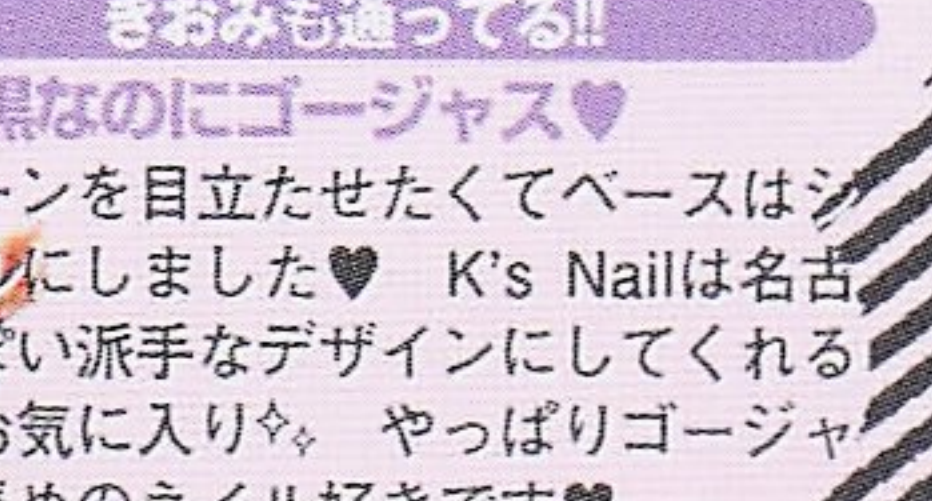 きおみも通ってる!!
黒なのにゴージャス♥
ーンを目立たせたくてベースはシ
ンにしました♥　K's Nailは名古
ぽい派手なデザインにしてくれる
お気に入り✧˖　やっぱりゴージャ
めのネイル好きです♥